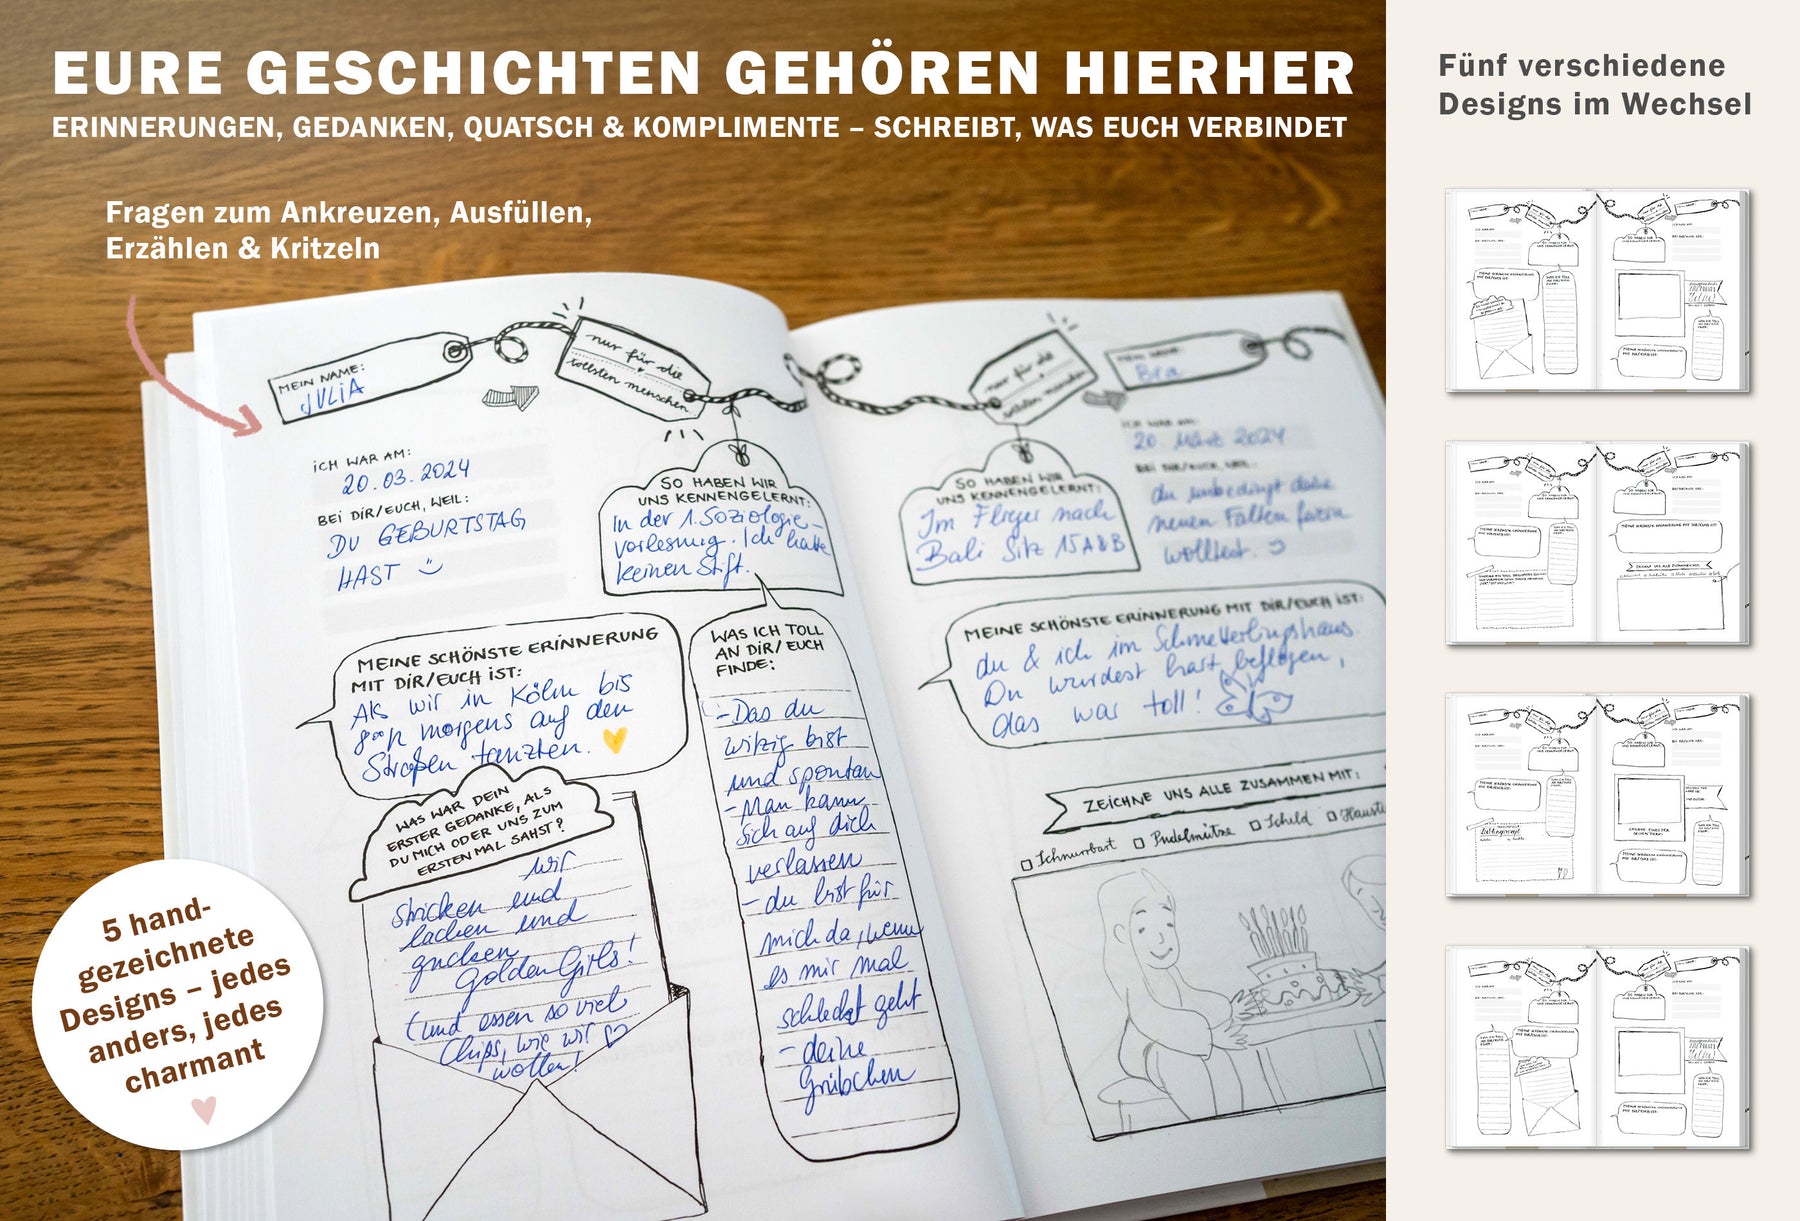 EURE GESCHICHTEN GEHÖREN HIERHER
ERINNERUNGEN, GEDANKEN, QUATSCH & KOMPLIMENTE – SCHREIBT, WAS EUCH VERBINDET
Fragen zum Ankreuzen, Ausfüllen,
Erzählen & Kritzeln
MEIN NAME:
JULIA
nur für die
tollsten menschen
ICH WAR AM:
20.03.2024
BEI DIR/EUCH, WEIL:
DU GEBURTSTAG
HAST
SO HABEN WIR
UNS KENNENGELERNT:
In der 1. Soziologie-
vorlesung. Ich hatte
keinen Stift.
MEINE SCHÖNSTE ERINNERUNG
MIT DIR/EUCH IST:
Als wir in Köln bis
morgens auf den
Straßen tanzten.
WAS ICH TOLL
AN DIR/EUCH
FINDE:
- Das du
witzig bist
und spontan
- Man kann
sich auf dich
verlassen
- du bist für
mich da, wenn
es mir mal
schlecht geht
- deine
Grübchen
WAS WAR DEIN
ERSTER GEDANKE, ALS
DU MICH ODER UNS ZUM
ERSTEN MAL SAHST?
wir
stricken und
lachen und
gucken
Golden Girls!
(und essen so viel
Chips, wie wir
wollen!
nur für die
MEIN NAME:
ICH WAR AM:
20. März 2024
BEI DIR/EUCH, WEIL:
du unbedingt deine
neuen Falten feiern
wolltest.
SO HABEN WIR
UNS KENNENGELERNT:
Im Flieger nach
Bali Sitz 15A&B
MEINE SCHÖNSTE ERINNERUNG MIT DIR/EUCH IST:
du & ich im Schmetterlingshaus.
Du wurdest hart beflogen,
das war toll!
ZEICHNE UNS ALLE ZUSAMMEN MIT:
Schnurrbart Pudelmütze Schild
5 hand-
gezeichnete
Designs – jedes
anders, jedes
charmant
Fünf verschiedene
Designs im Wechsel